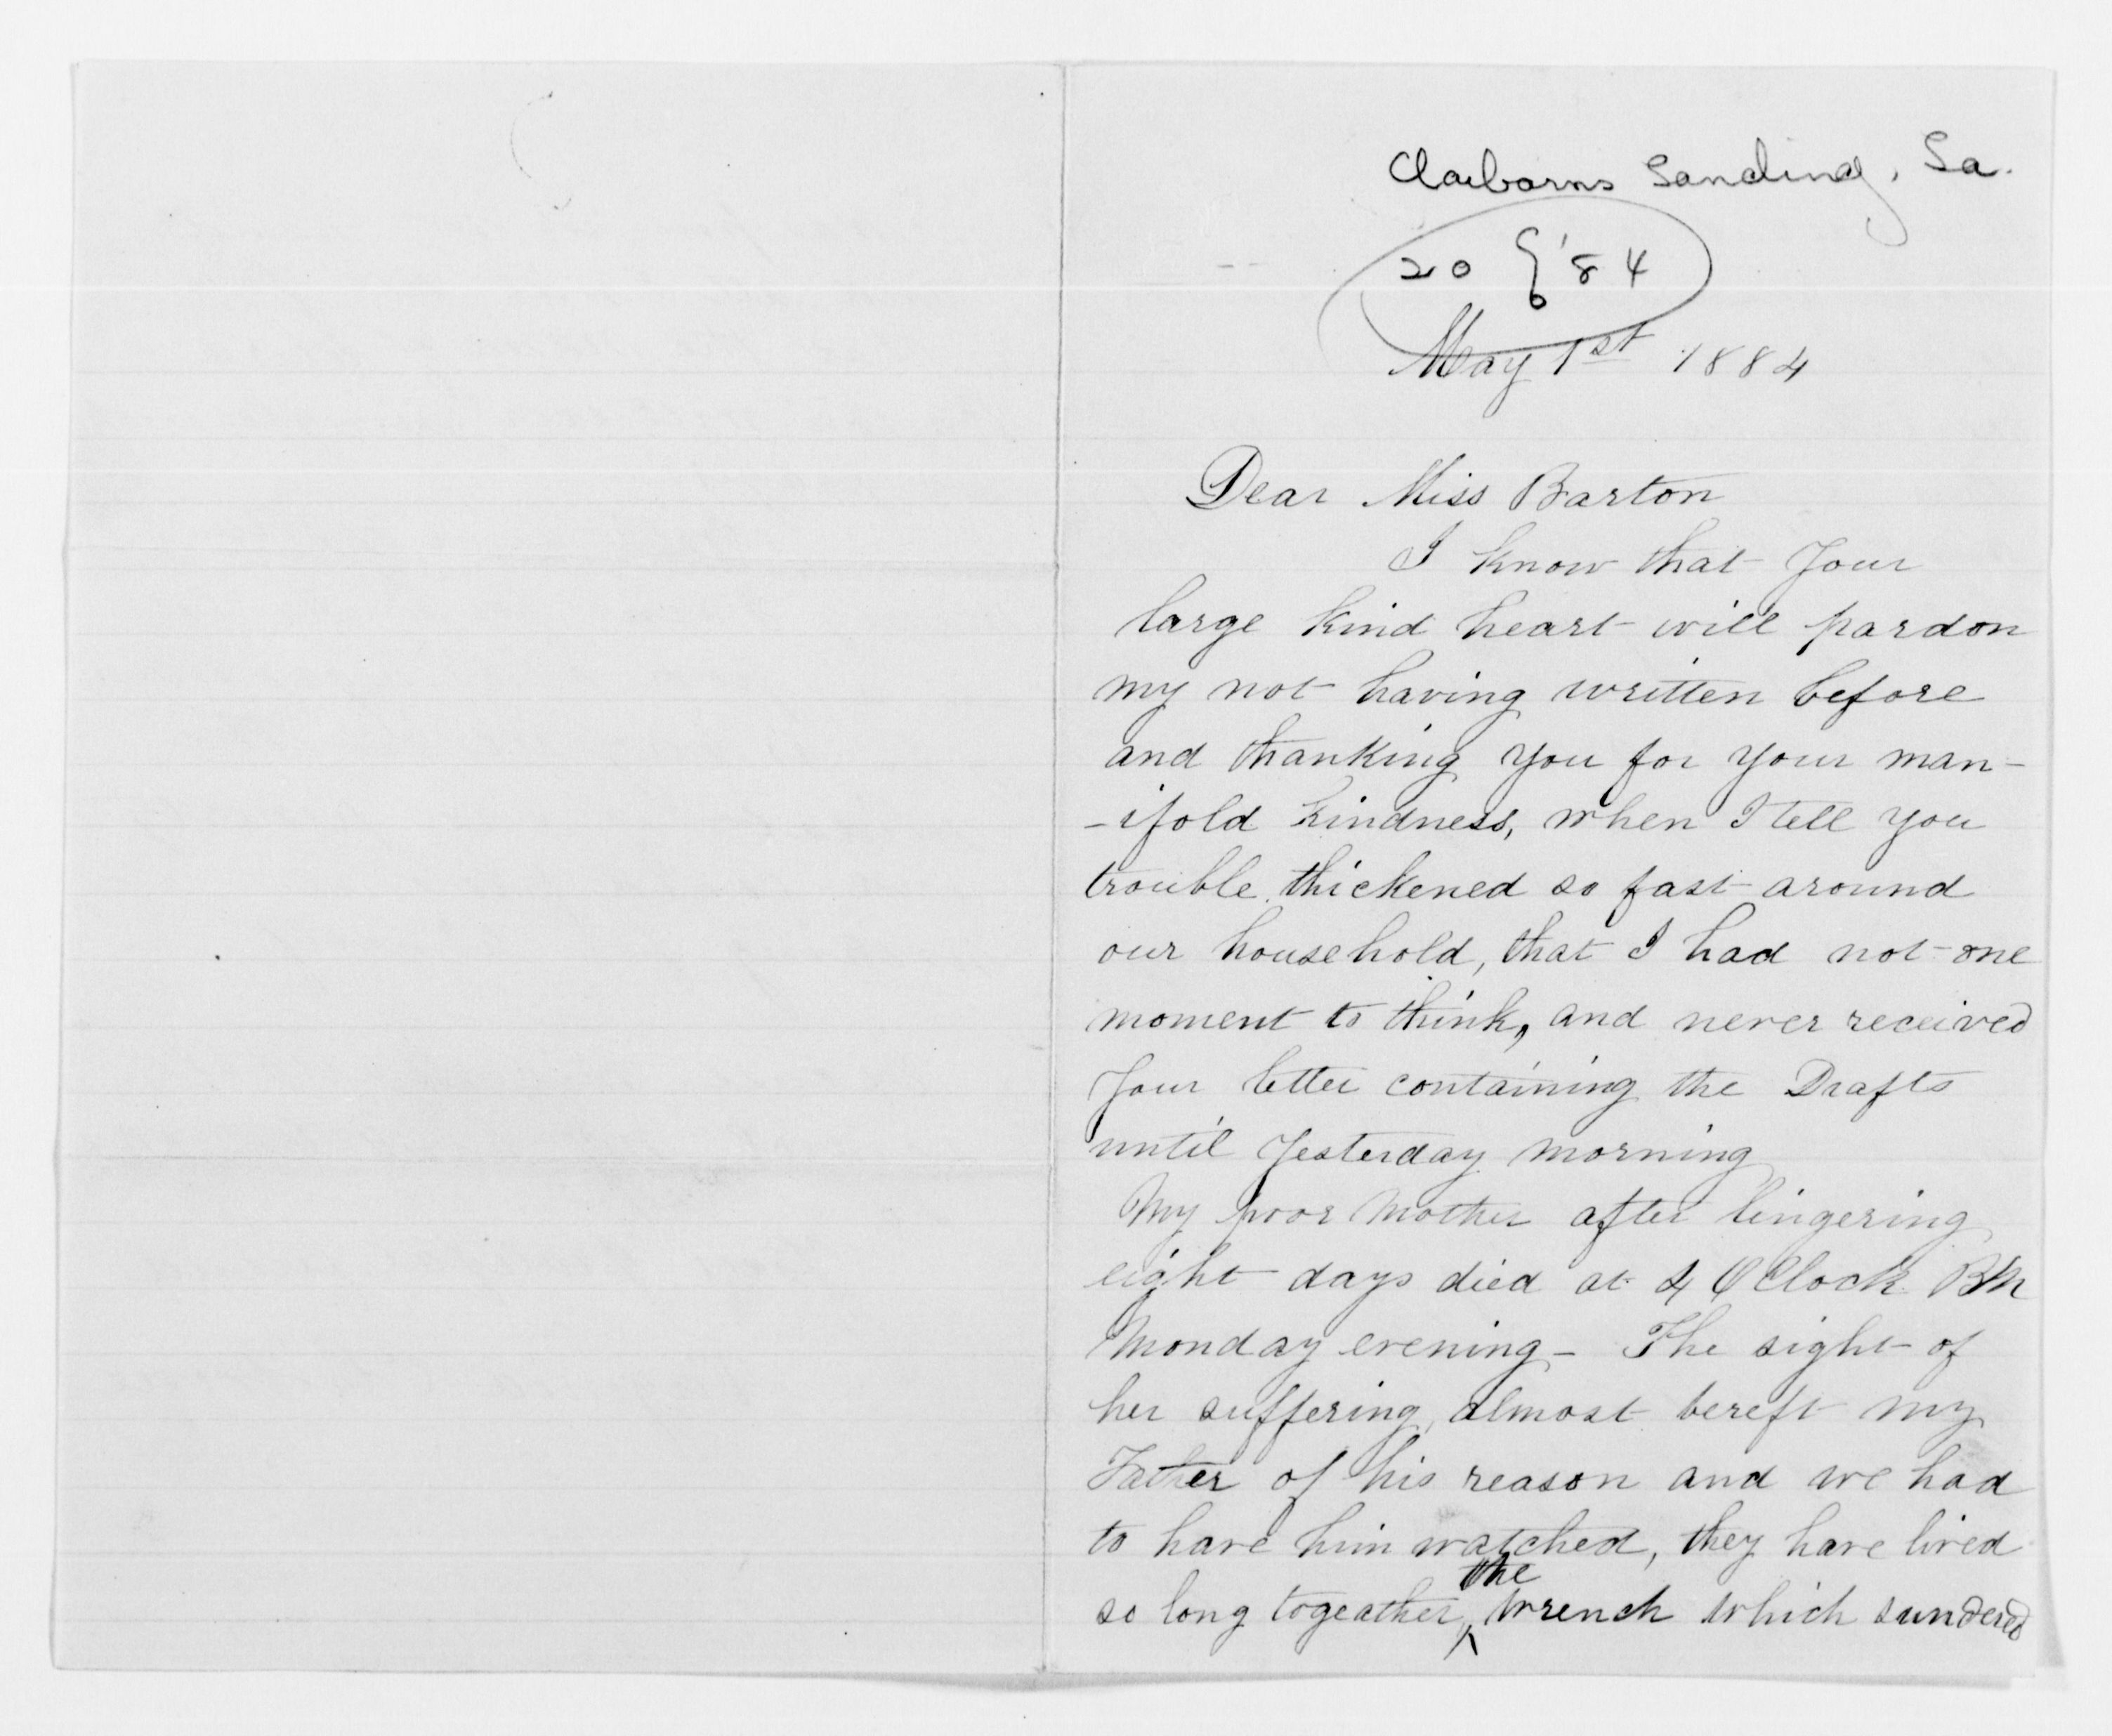 Claiborns Landing, La.
20 '84
May 1st 1884
Dear Miss Barton
I know that Your
large kind heart will pardon
my not having written before
and thanking you for your man-
-ifold kindness, when I tell you
trouble thickened so fast around
our household, that I had not one
moment to think, and never received
Your letter containing the Drafts
until Yesterday morning
My poor Mother after lingering
eight days died at 4 OClock PM
Monday evening - The sight of
her suffering, almost bereft my
Father of his reason and we had
to have him watched, they have lived
so long togeather, the wrench which sundered